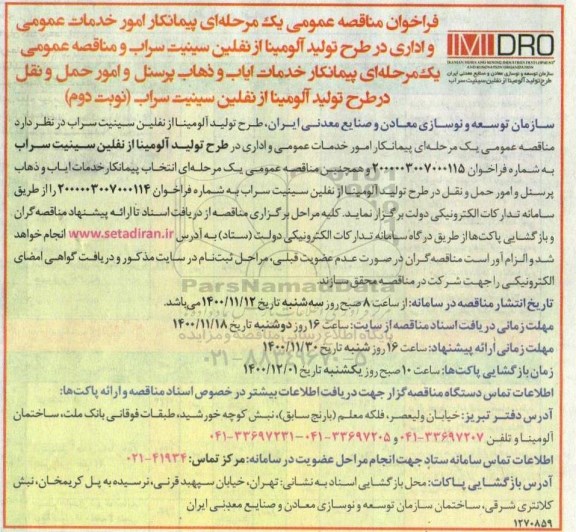 فراخوان مناقصه عمومی یک مرحله‌ای پیمانکار امور خدمات عمومی
و اداری در طرح تولید آلومینا از نفلین سینیت سراب و مناقصه عمومی
یک‌مرحله‌ای پیمانکار خدمات ایاب و ذهاب پرسنل و امور حمل و نقل
در طرح تولید آلومینا از نفلین سینیت سراب (نوبت دوم)
IMIDRO
IRANIAN MINES AND MINING INDUSTRIES DEVELOPMENT
AND RENOVATION ORGANIZATION
سازمان توسعه و نوسازی معادن و صنایع معدنی ایران
طرح تولید آلومینا از نفلین سینیت سراب
سازمان توسعه و نوسازی معادن و صنایع معدنی ایران، طرح تولید آلومینا از نفلین سینیت سراب در نظر دارد
مناقصه عمومی یک مرحله‌ای پیمانکار امور خدمات عمومی و اداری در طرح تولید آلومینا از نفلین سینیت سراب
به شماره فراخوان ۲۰۰۰۰۰۳۰۰۷۰۰۰۱۱۵ و همچنین مناقصه عمومی یک مرحله‌ای انتخاب پیمانکار خدمات ایاب و ذهاب
پرسنل و امور حمل و نقل در طرح تولید آلومینا از نفلین سینیت سراب به شماره فراخوان ۲۰۰۰۰۰۳۰۰۷۰۰۰۱۱۴ را از طریق
سامانه تدارکات الکترونیکی دولت برگزار نماید. کلیه مراحل برگزاری مناقصه از دریافت اسناد تا ارائه پیشنهاد مناقصه‌گران
و بازگشایی پاکت‌ها از طریق درگاه سامانه تدارکات الکترونیکی دولت (ستاد) به آدرس www.setadiran.ir انجام خواهد
شد و الزام آور است مناقصه‌گران در صورت عدم عضویت قبلی، مراحل ثبت‌نام در سایت مذکور و دریافت گواهی امضای
الکترونیکی را جهت شرکت در مناقصه محقق سازند.
تاریخ انتشار مناقصه در سامانه: از ساعت ۸ صبح روز سه‌شنبه تاریخ ۱۴۰۰/۱۱/۱۲ می‌باشد.
مهلت زمانی دریافت اسناد مناقصه از سایت: ساعت ۱۶ روز دوشنبه تاریخ ۱۴۰۰/۱۱/۱۸
مهلت زمانی ارائه پیشنهاد: ساعت ۱۶ روز شنبه تاریخ ۱۴۰۰/۱۱/۳۰
زمان بازگشایی پاکت‌ها: ساعت ۱۰ صبح روز یکشنبه تاریخ ۱۴۰۰/۱۲/۰۱
اطلاعات تماس دستگاه مناقصه‌گزار جهت دریافت اطلاعات بیشتر در خصوص اسناد مناقصه و ارائه پاکت‌ها:
آدرس دفتر تبریز: خیابان ولیعصر، فلکه معلم (بارنج سابق)، نبش کوچه خورشید، طبقات فوقانی بانک ملت، ساختمان
آلومینا و تلفن ۳۳۶۹۷۲۰۷-۰۴۱ و ۳۳۶۹۷۲۰۵-۰۴۱ ۳۳۶۹۷۲۳۱-۰۴۱
اطلاعات تماس سامانه ستاد جهت انجام مراحل عضویت در سامانه: مرکز تماس: ۴۱۹۳۴-۰۲۱
آدرس بازگشایی پاکات: محل بازگشایی اسناد به نشانی: تهران، خیابان سپهبد قرنی، نرسیده به پل کریمخان، نبش
کلانتری شرقی، ساختمان سازمان توسعه و نوسازی معادن و صنایع معدنی ایران
۱۲۷۰۸۵۹
ParsNamadData
پایگاه اطلاع رسانی مناقصه و مزایده